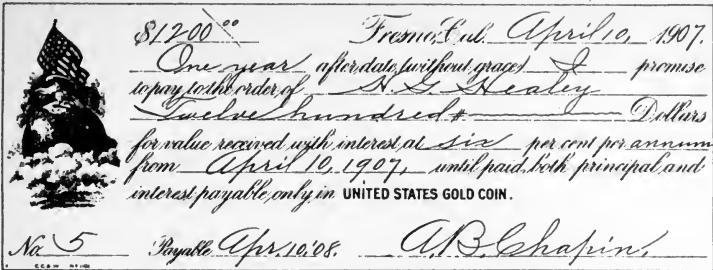 $1200.00 Fresno, Cal. April 10, 1907.
One year after date, (without grace) I promise
to pay to the order of H. G. Healey
Twelve hundred # Dollars
for value received, with interest at six per cent per annum
from April 10, 1907, until paid, both principal and
interest payable only in UNITED STATES GOLD COIN.
No. 5 Payable Apr. 10, '08. A. B. Chapin.